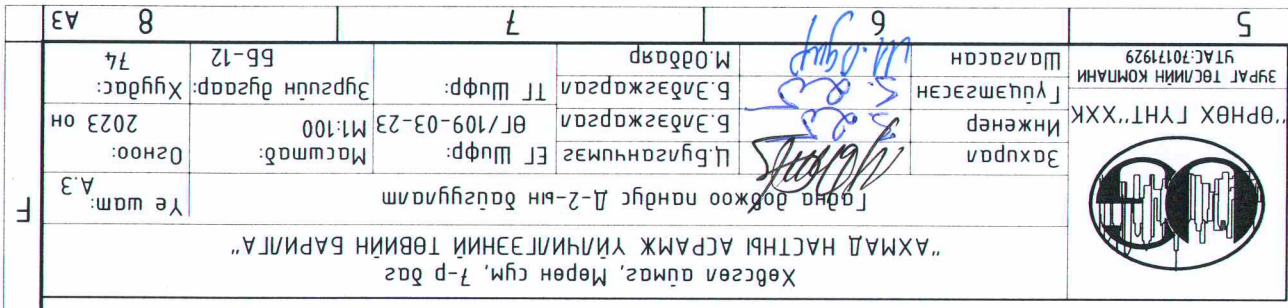 Хөвсгөл аймаг, Мөрөн сум, 7-р баг
"АХМАД НАСТНЫ АСРАМЖ ҮЙЛЧИЛГЭЭНИЙ ТӨВИЙН БАРИЛГА"
Гадна довжоо пандус Д-2-ын байгуулалт
Үе шат: А.З
"ӨРНӨХ ГҮНТ"ХХК
ЗУРАГ ТӨСЛИЙН КОМПАНИ
УТАС:70171929
Захирал Ц.Булганчимэг ЕГ Шифр: Масштаб: Огноо:
Инженер Б.Элбэгжаргал ӨГ/109-03-23 М1:100 2023 он
Гүйцэтгэсэн Б.Элбэгжаргал ТГ Шифр: Зургийн дугаар: Хуудас:
Шалгасан М.Одбаяр ББ-12 74
5 6 7 8 А3
F